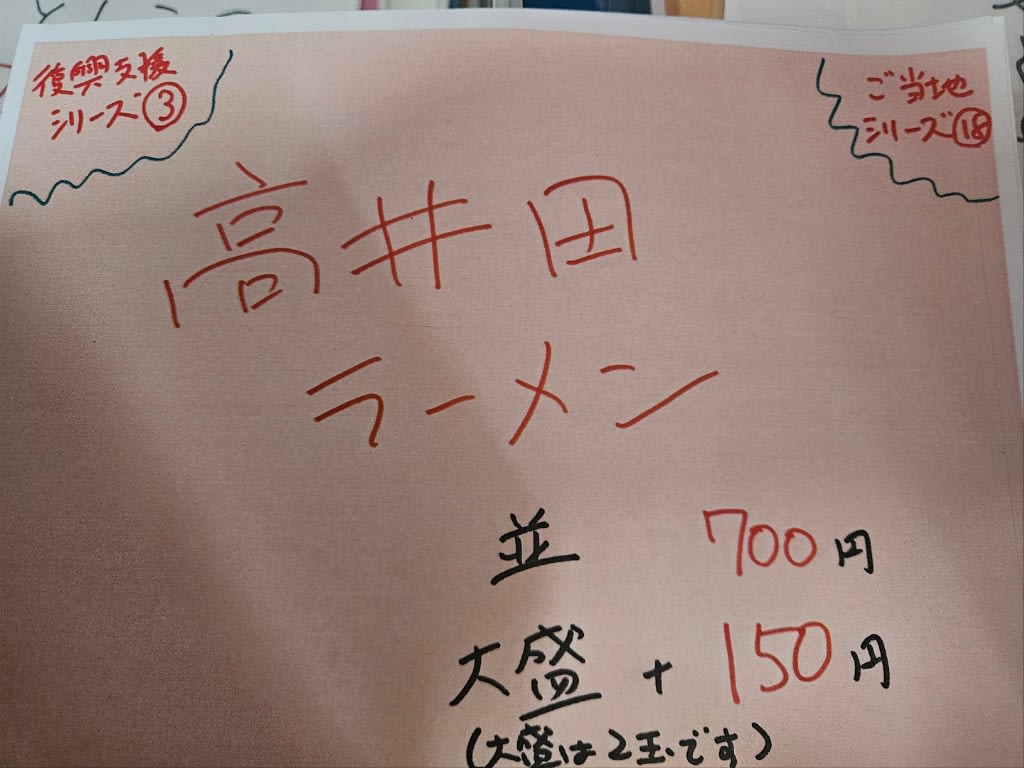 復興支援
シリーズ③
ご当地
シリーズ⑱
高井田
ラーメン
並 700円
大盛 + 150円
(大盛は2玉です)